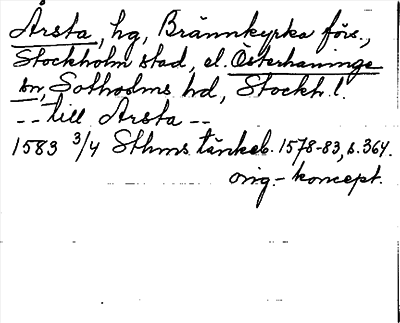 Årsta, hg, Brännkyrka förs.,
Stockholm stad, el. Österhaninge
sn, Sotholms hd, Stockh. l.
-- till Arsta --
1583 3/4 Sthms tänkeb. 1578-83, s. 364.
orig.- koncept.